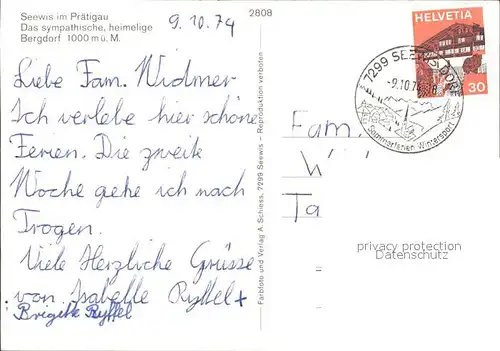 Seewis im Prätigau
Das sympathische, heimelige
Bergdorf 1000 m ü. M.
9.10.74
2808
Liebe Fam. Widmer
Ich verlebe hier schöne
Ferien. Die zweite
Woche gehe ich nach
Trogen.
Viele Herzliche Grüsse
von Isabelle Ryffel +
Brigitte Ryffel
Farbfoto und Verlag A. Schiess, 7299 Seewis – Reproduktion verboten
HELVETIA
30
7299 SEEWIS DORF
-9.10.74
Sommerferien Wintersport
Fam.
W
Ta
privacy protection
Datenschutz